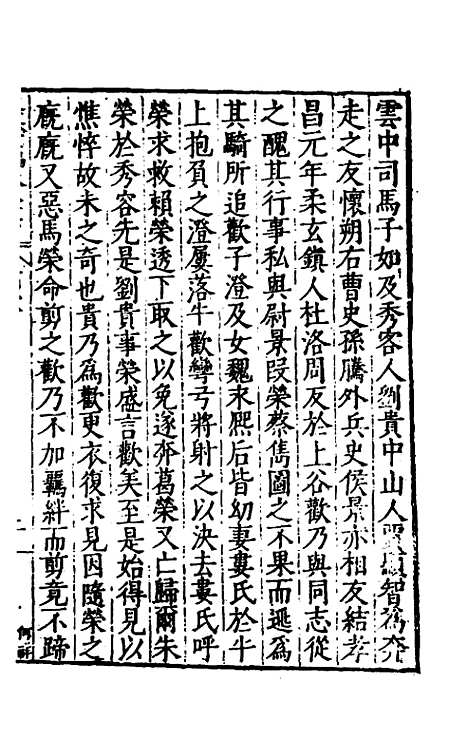 雲中司馬子如及秀容人劉貴中山人賈顯智爲奔
走之友懷朔右曹史孫騰外兵史侯景亦相友結孝
昌元年柔玄鎮人杜洛周反於上谷歡乃與同志從
之醜其行事私與尉景叚榮蔡儁圖之不果而逃爲
其騎所追歡子澄及女魏末熈后皆幼妻婁氏於牛
上抱負之澄屢落牛歡彎弓將射之以决去婁氏呼
榮求救賴榮透下取之以免遂奔葛榮又亡歸爾朱
榮於秀容先是劉貴事榮盛言歡美至是始得見以
憔悴故未之奇也貴乃爲歡更衣復求見因隨榮之
廐廐又惡馬榮命剪之歡乃不加羈絆而剪竟不蹄